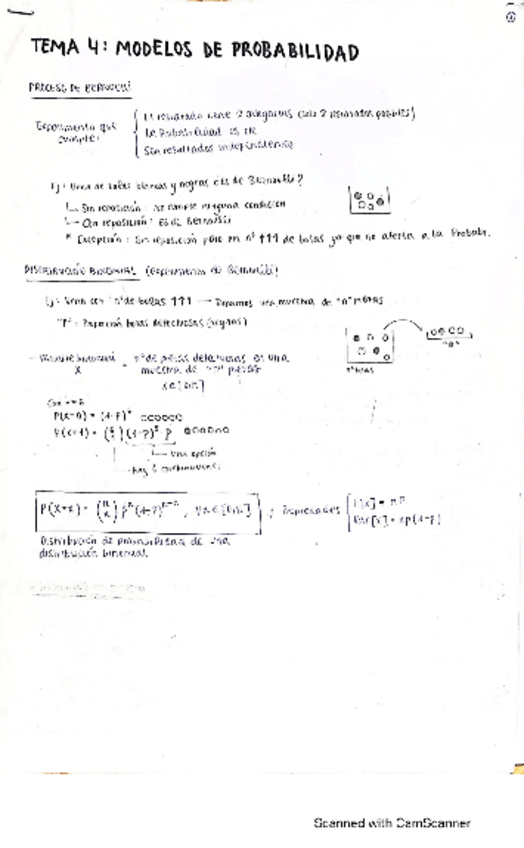 TEMA 4: MODELOS DE PROBABILIDAD
PROCESO DE BERNOULLI
Experimento que cumple:
El resultado tiene 2 categorías (solo 2 resultados posibles)
La Probabilidad es cte
Son resultados independientes
Ej: Urna de bolas blancas y negras ¿es de Bernoulli?
Sin reposición: No cumple ninguna condición
Con reposición: Es de Bernoulli
* Excepción: Sin reposición pero un nº ↑↑↑ de bolas ya que no afecta a la Probab.
DISTRIBUCIÓN BINOMIAL (Experimentos de Bernoulli)
Ej: Urna con nº de bolas ↑↑↑ → Tomamos una muestra de "n" piezas
"P": Proporción bolas defectuosas (negras)
Variable binomial X = nº de piezas defectuosas en una
muestra de "n" piezas
x ∈ [0,n]
Con n=6
P(X=0) = (1-P)⁶ ○○○○○○
P(X=1) = (6 1) (1-P)⁵ P ●○○○○○
Una opción
Hay 6 combinaciones
P(X=x) = (n x) pˣ (1-p)ⁿ⁻ˣ, ∀x ∈ [0,n] ; Propiedades
E[x] = nP
Var[x] = np(1-p)
Distribución de probabilidad de una
distribución binomial
Scanned with CamScanner